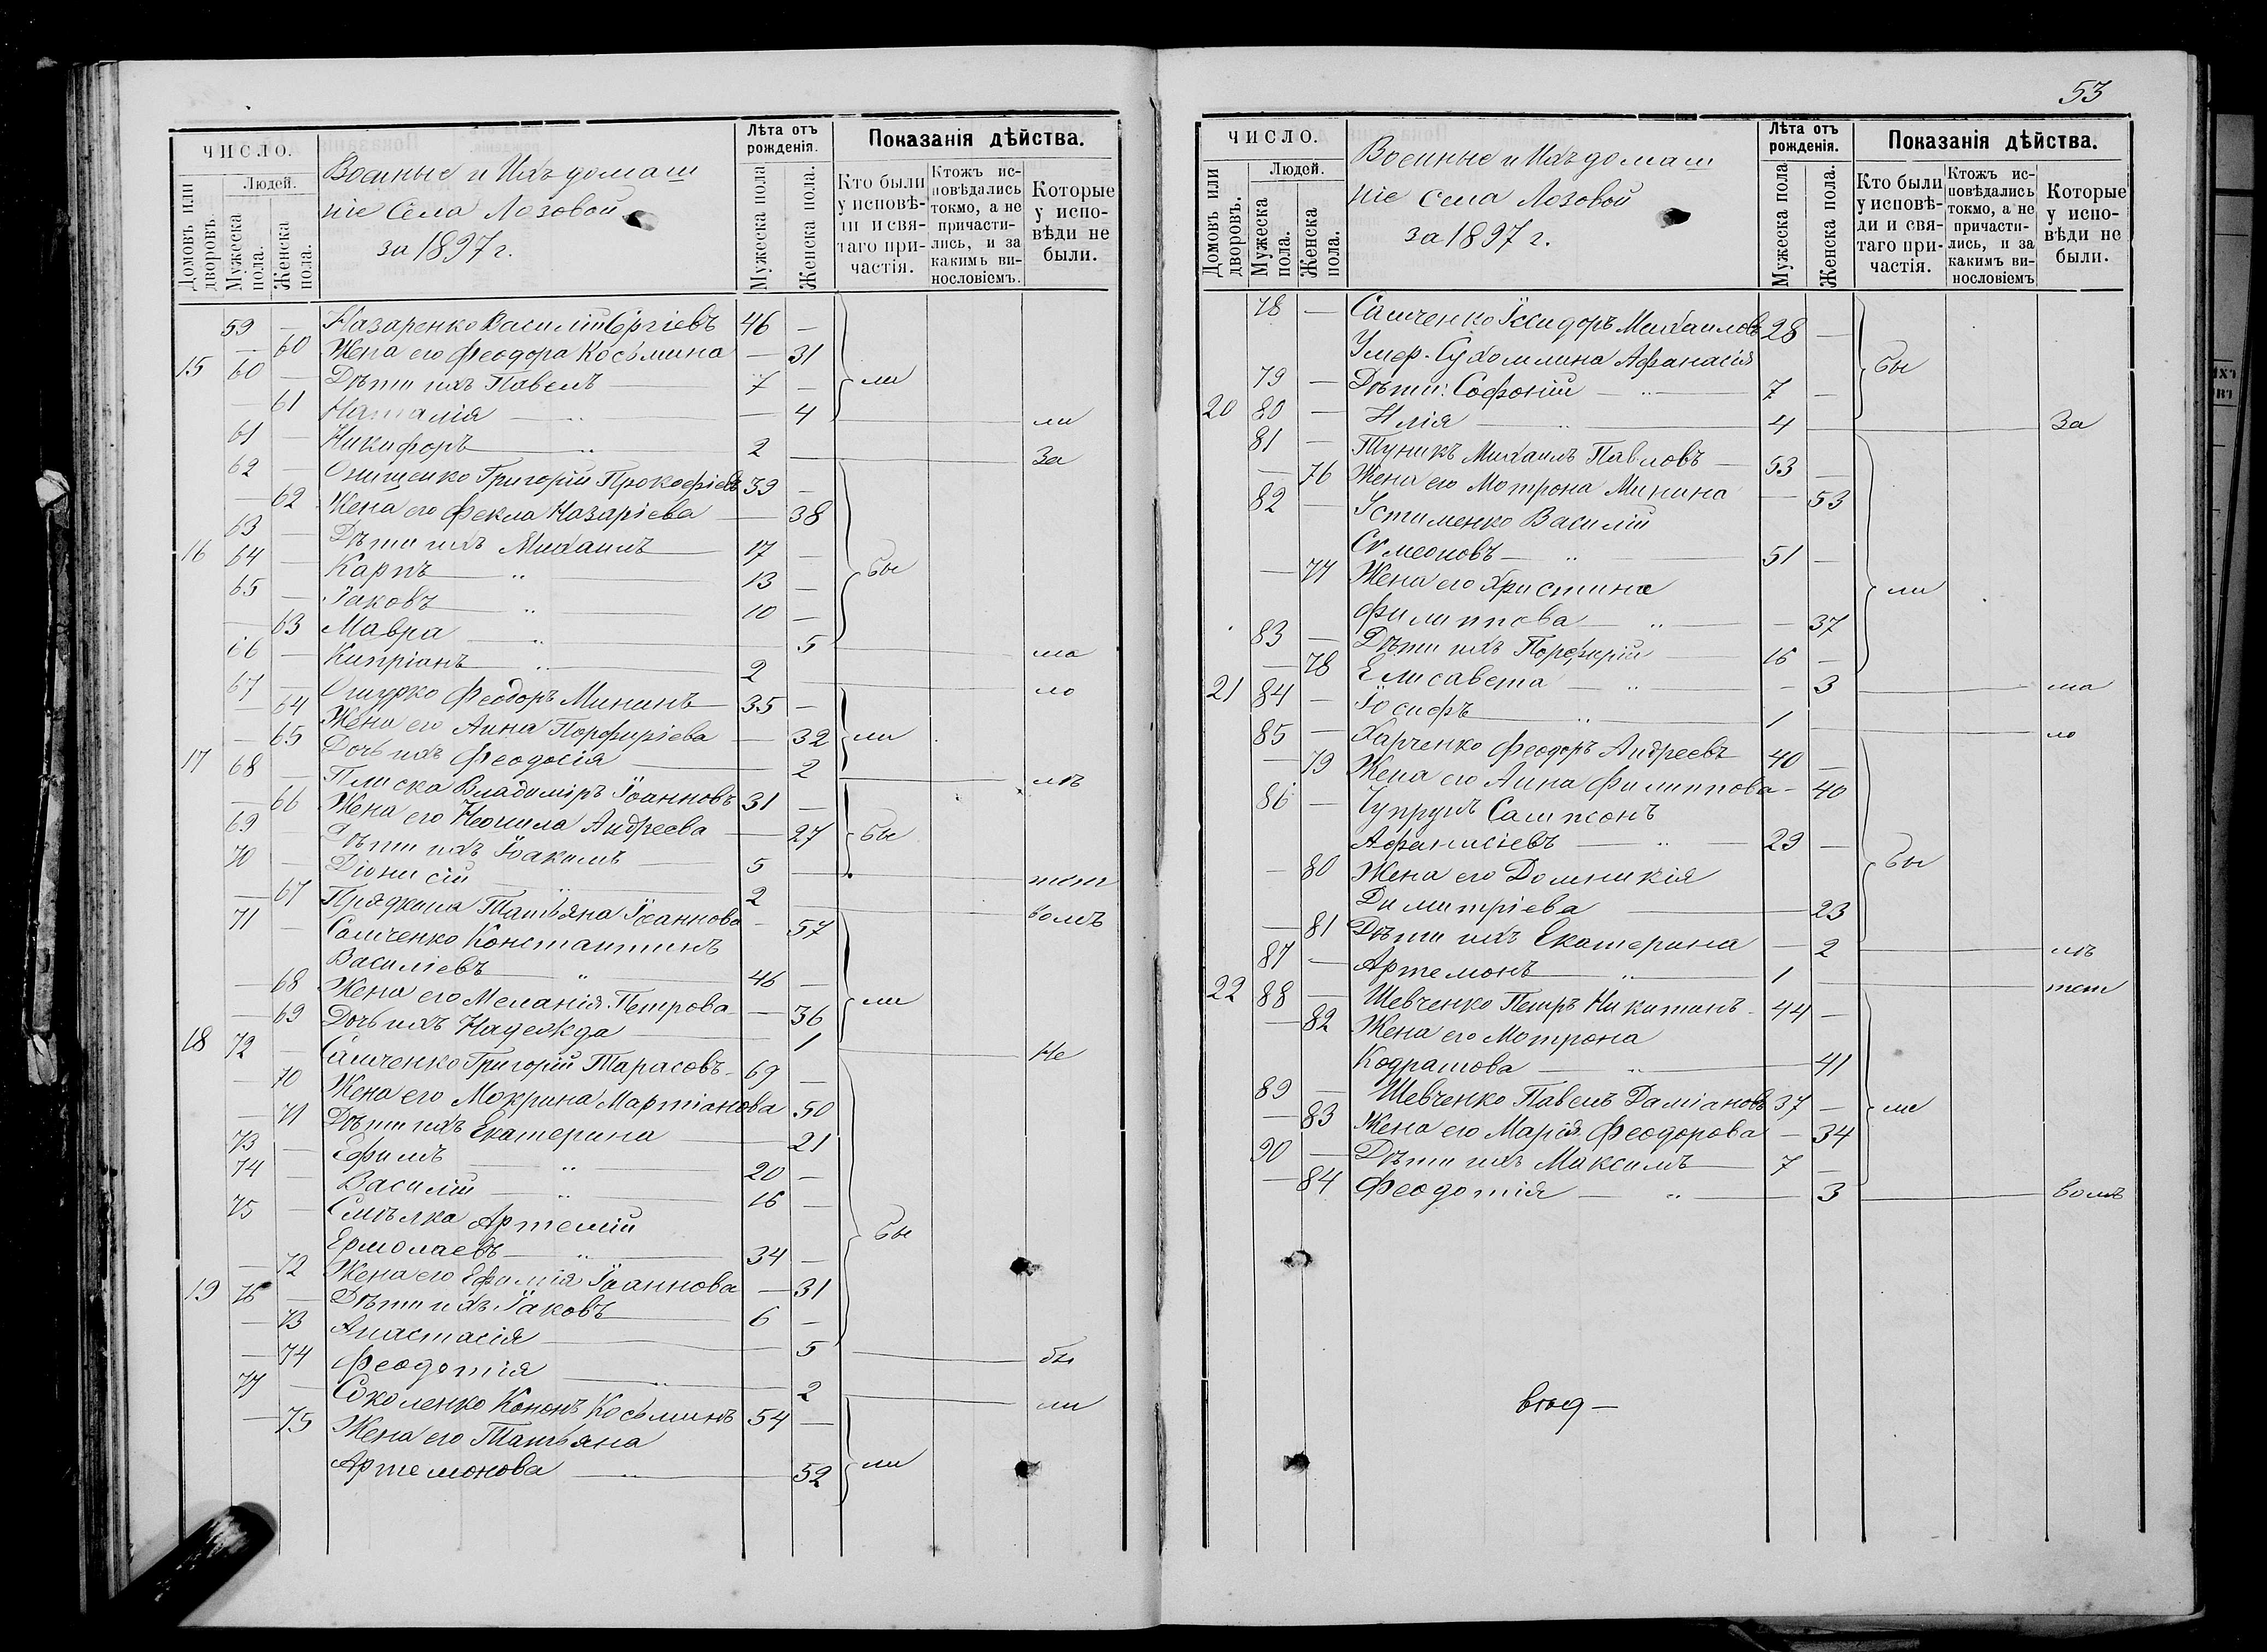 ЧИСЛО.
Домовъ или дворовъ.
Людей.
Мужеска пола.
Женска пола.
Военные и Ихъ домаш
ніе Села Лозовой
за 1897 г.
Лѣта отъ рожденія.
Мужеска пола
Женска пола.
Показанія дѣйства.
Кто были у исповѣди и святаго причастія.
Ктожъ исповѣдались токмо, а не причастились, и за какимъ винословіемъ.
Которые у исповѣди не были.
59 — Назаренко Василій Сергіевъ 46 —
— 60 Жена его Феодора Косьмина — 31
15 60 — Дѣти ихъ Павелъ 7 — ли
— 61 Наталія — 4 ли
61 — Никифоръ 2 За
62 — Онищенко Григорій Прокофіевъ 39 —
— 62 Жена его Фекла Назаріева — 38
63 — Дѣти ихъ Михаилъ 17 —
16 64 — Карпъ 13 — бы
65 — Іаковъ 10 —
— 63 Мавра — 5 ла
66 — Кипріанъ 2 ло
67 — Ошурко Феодоръ Мининъ 35 —
— 64 Жена его Анна Порфиріева — 32 ли
— 65 Дочь ихъ Феодосія — 2 лъ
17 68 — Плиска Владиміръ Іоанновъ 31 —
— 66 Жена его Неонила Андреева — 27 бы
69 — Дѣти ихъ Іоакимъ 5
70 — Діонисій 2
— 67 Татьяна Іоаннова — 57
71 — Самченко Константинъ
Василіевъ 46 —
— 68 Жена его Меланія Петрова — 36 ли
— 69 Дочь ихъ Надежда 1 Не
18 72 — Самченко Григорій Тарасовъ 69 —
— 70 Жена его Мокрина Мартіанова 50
— 71 Дѣти ихъ Екатерина — 21
73 — Ефимъ 20 —
74 — Василій 16 —
75 — Смѣлка Артемій
Ермолаевъ 34 — бы
— 72 Жена его Ефимія Іоаннова — 31
19 76 — Дѣти ихъ Іаковъ 6 —
— 73 Анастасія — 5 бы
— 74 Феодотія 2 ли
77 — Соколенко Кононъ Косьминъ 54 —
— 75 Жена его Татьяна
Артемонова 52 ли
53
ЧИСЛО.
Домовъ или дворовъ.
Людей.
Мужеска пола.
Женска пола.
Военные и Ихъ домаш
ніе села Лозовой
за 1897 г.
Лѣта отъ рожденія.
Мужеска пола
Женска пола.
Показанія дѣйства.
Кто были у исповѣди и святаго причастія.
Ктожъ исповѣдались токмо, а не причастились, и за какимъ винословіемъ
Которые у исповѣди не были.
78 — Самченко Ісидоръ Михаиловъ 28 —
Умер. Сухомлина Афанасія бы
79 — Дѣти: Софоній 7 —
20 80 — Илія 4 За
81 — Туникъ Михаилъ Павловъ 53 —
— 76 Жена его Мотрона Минина — 53
82 — Устименко Василій
Симеоновъ 51 —
— 77 Жена его Христина ли
Филиппова — 37
83 — Дѣти ихъ Порфирій 16 —
— 78 Елисавета — 3 ла
21 84 — Іосифъ 1 ло
85 — Харченко Феодоръ Андреевъ 40 —
— 79 Жена его Анна Филиппова — 40
86 — Чупрунъ Сампсонъ
Афанасіевъ 29 —
— 80 Жена его Домникія бы
Димитріева 23
— 81 Дѣти ихъ Екатерина — 2 лъ
87 — Артемонъ 1
22 88 — Шевченко Петръ Никитинъ 44 —
— 82 Жена его Мотрона
Кодратова 41
89 — Шевченко Павелъ Даміановъ 37 — ли
— 83 Жена его Марія Феодорова — 34
90 — Дѣти ихъ Максимъ 7 —
— 84 Феодотія 3